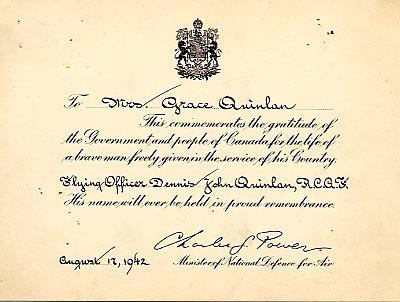 To Mrs. Grace Quinlan
This commemorates the gratitude of
the Government and people of Canada for the life of
a brave man freely given in the service of his Country.
Flying Officer Dennis John Quinlan, R.C.A.F.
His name will ever be held in proud remembrance.
Charles G Power
August 17, 1942 Minister of National Defence for Air